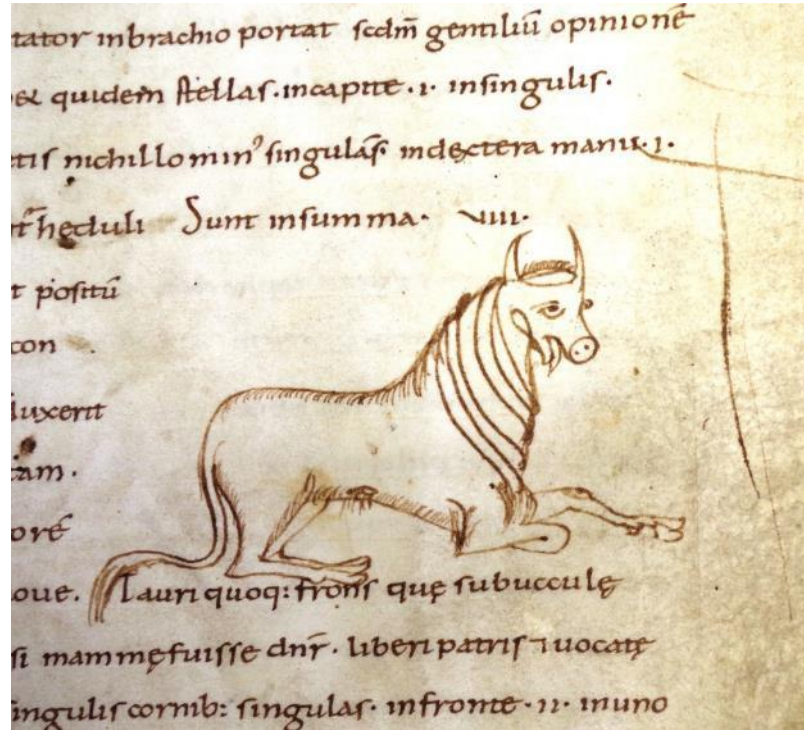 tator inbrachio portat scdm̄ gentiliū opinionē
& quidem stellas. incapite .i. insingulis.
ctis nichillomin᾽ singulas indextera manu .i.
heduli Sunt insumma. viiii.
t positū
con
luxerit
tam.
orē
oue. Tauri quoq: frons quę subucculę
si mammę fuisse dn̄r. liberi patris ⁊ uocatę
singulis cornib: singulas. infronte .ii. inuno